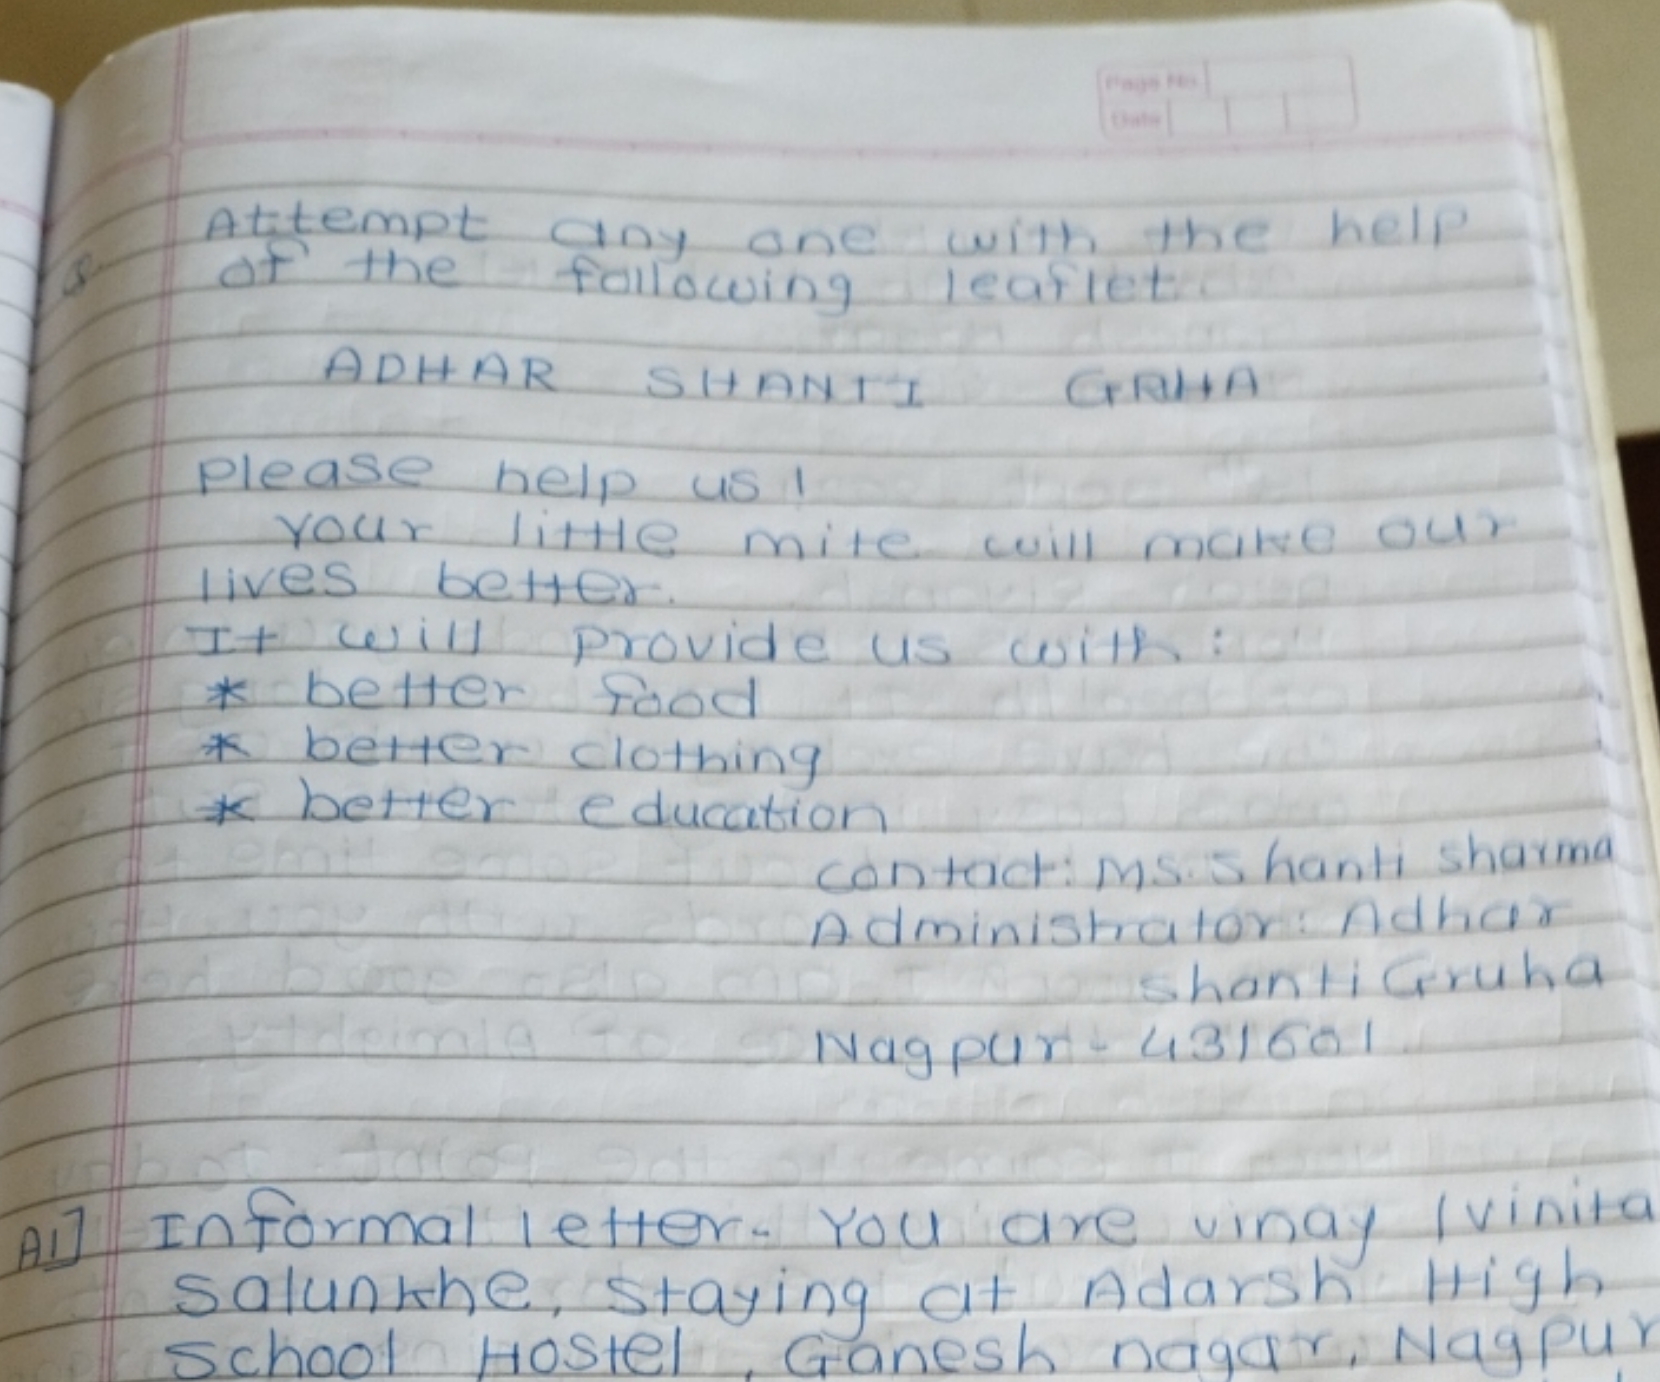 Page No.
Date
Attempt any one with the help
of the following leaflet
ADHAR SHANTI GRHA
please help us!
Your little mite will make our
lives better.
It will provide us with:
* better food
* better clothing
* better education
contact: MS. Shanti sharma
Administrator: Adhar
shanti Gruha
Nagpur- 431601
A1] Informal letter- You are vinay /vinita
salunkhe, staying at Adarsh High
School Hostel, Ganesh nagar, Nagpur